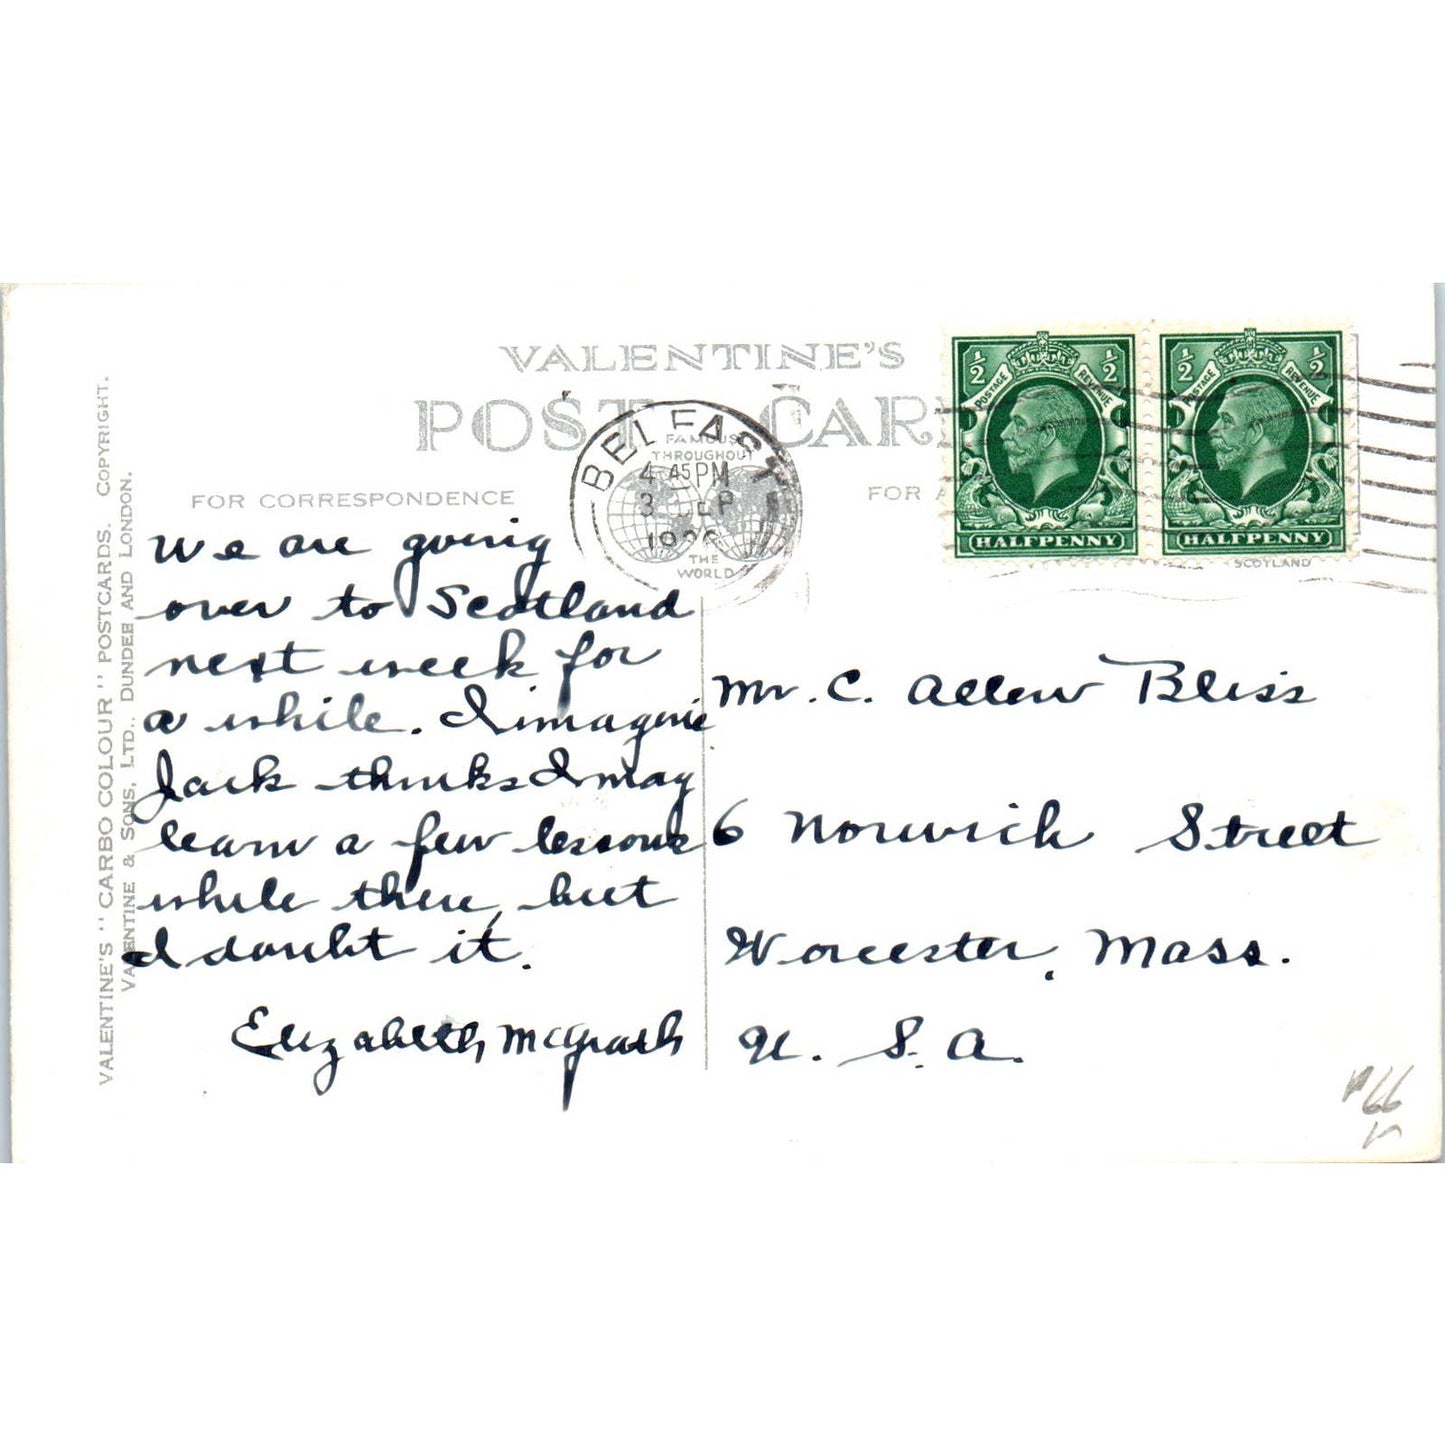 VALENTINE'S
POST CAR
FOR CORRESPONDENCE
FOR A
FAMOUS
THROUGHOUT
THE
WORLD
BELFAST
4.45 PM
3 SEP
½ ½
POSTAGE REVENUE
HALFPENNY
½ ½
POSTAGE REVENUE
HALFPENNY
SCOTLAND
VALENTINE'S "CARBO COLOUR" POSTCARDS. COPYRIGHT.
VALENTINE & SONS, LTD., DUNDEE AND LONDON.
We are going
over to Scotland
next week for
a while. I imagine
Jack thinks I may
learn a few lessons
while there, but
I doubt it.
Elizabeth McGrath
Mr. C. Allen Bliss
6 Norwich Street
Worcester, Mass.
U. S. A.